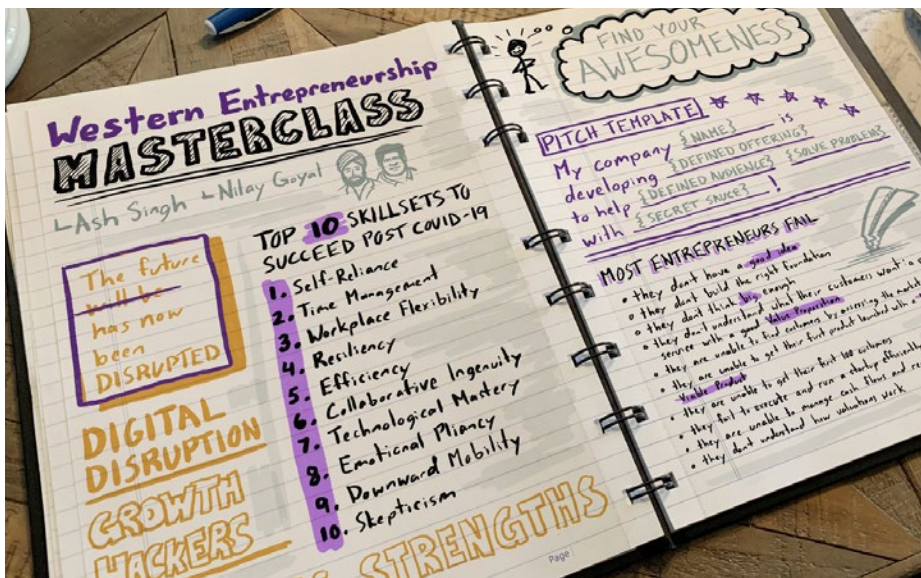 Western Entrepreneurship
MASTERCLASS
Ash Singh
Nilay Goyal
The future
will be
has now
been
DISRUPTED
DIGITAL
DISRUPTION
GROWTH
HACKERS
TOP 10 SKILLSETS TO
SUCCEED POST COVID-19
1. Self-Reliance
2. Time Management
3. Workplace Flexibility
4. Resiliency
5. Efficiency
6. Collaborative Ingenuity
7. Technological Mastery
8. Emotional Pliancy
9. Downward Mobility
10. Skepticism
STRENGTHS
Page
FIND YOUR
AWESOMENESS
PITCH TEMPLATE
My company {NAME} is
developing {DEFINED OFFERING}
to help {DEFINED AUDIENCE} {SOLVE PROBLEM}
with {SECRET SAUCE}!
MOST ENTREPRENEURS FAIL
• they don't have a good idea
• they don't build the right foundation
• they don't think big enough
• they don't understand what their customers want
service with a good Value Proposition
• they are unable to find customers by assessing the market
• they are unable to get their first product launched with
Viable Product
• they are unable to get their first 100 customers
• they fail to execute and run a startup efficiently
• they are unable to manage cash flows and
• they don't understand how valuations work